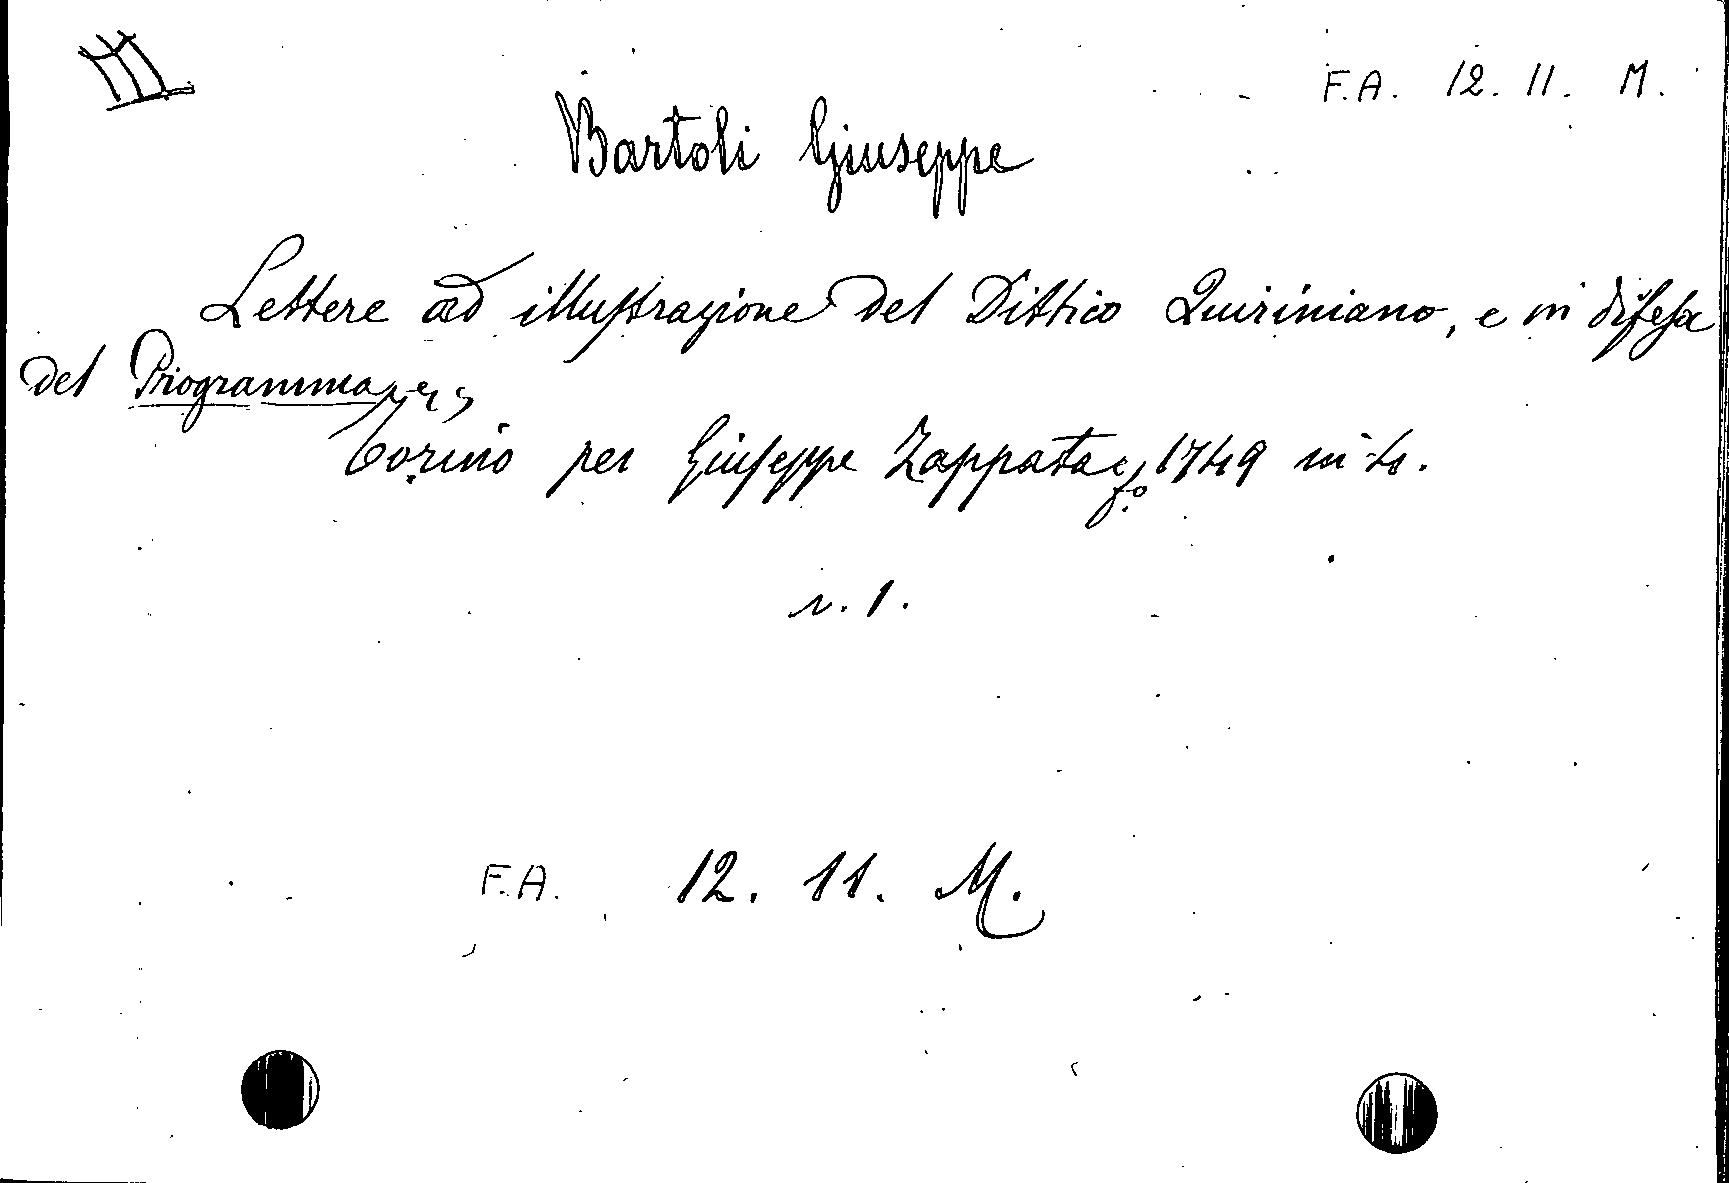 F.A. 12. 11. M.
Bartoli Giuseppe
Lettere ad illustrazione del Dittico Quiriniano, e in difesa
del Programma
Torino per Giuseppe Zappata 1749 in 4.
v. 1.
F.A. 12. 11. M.